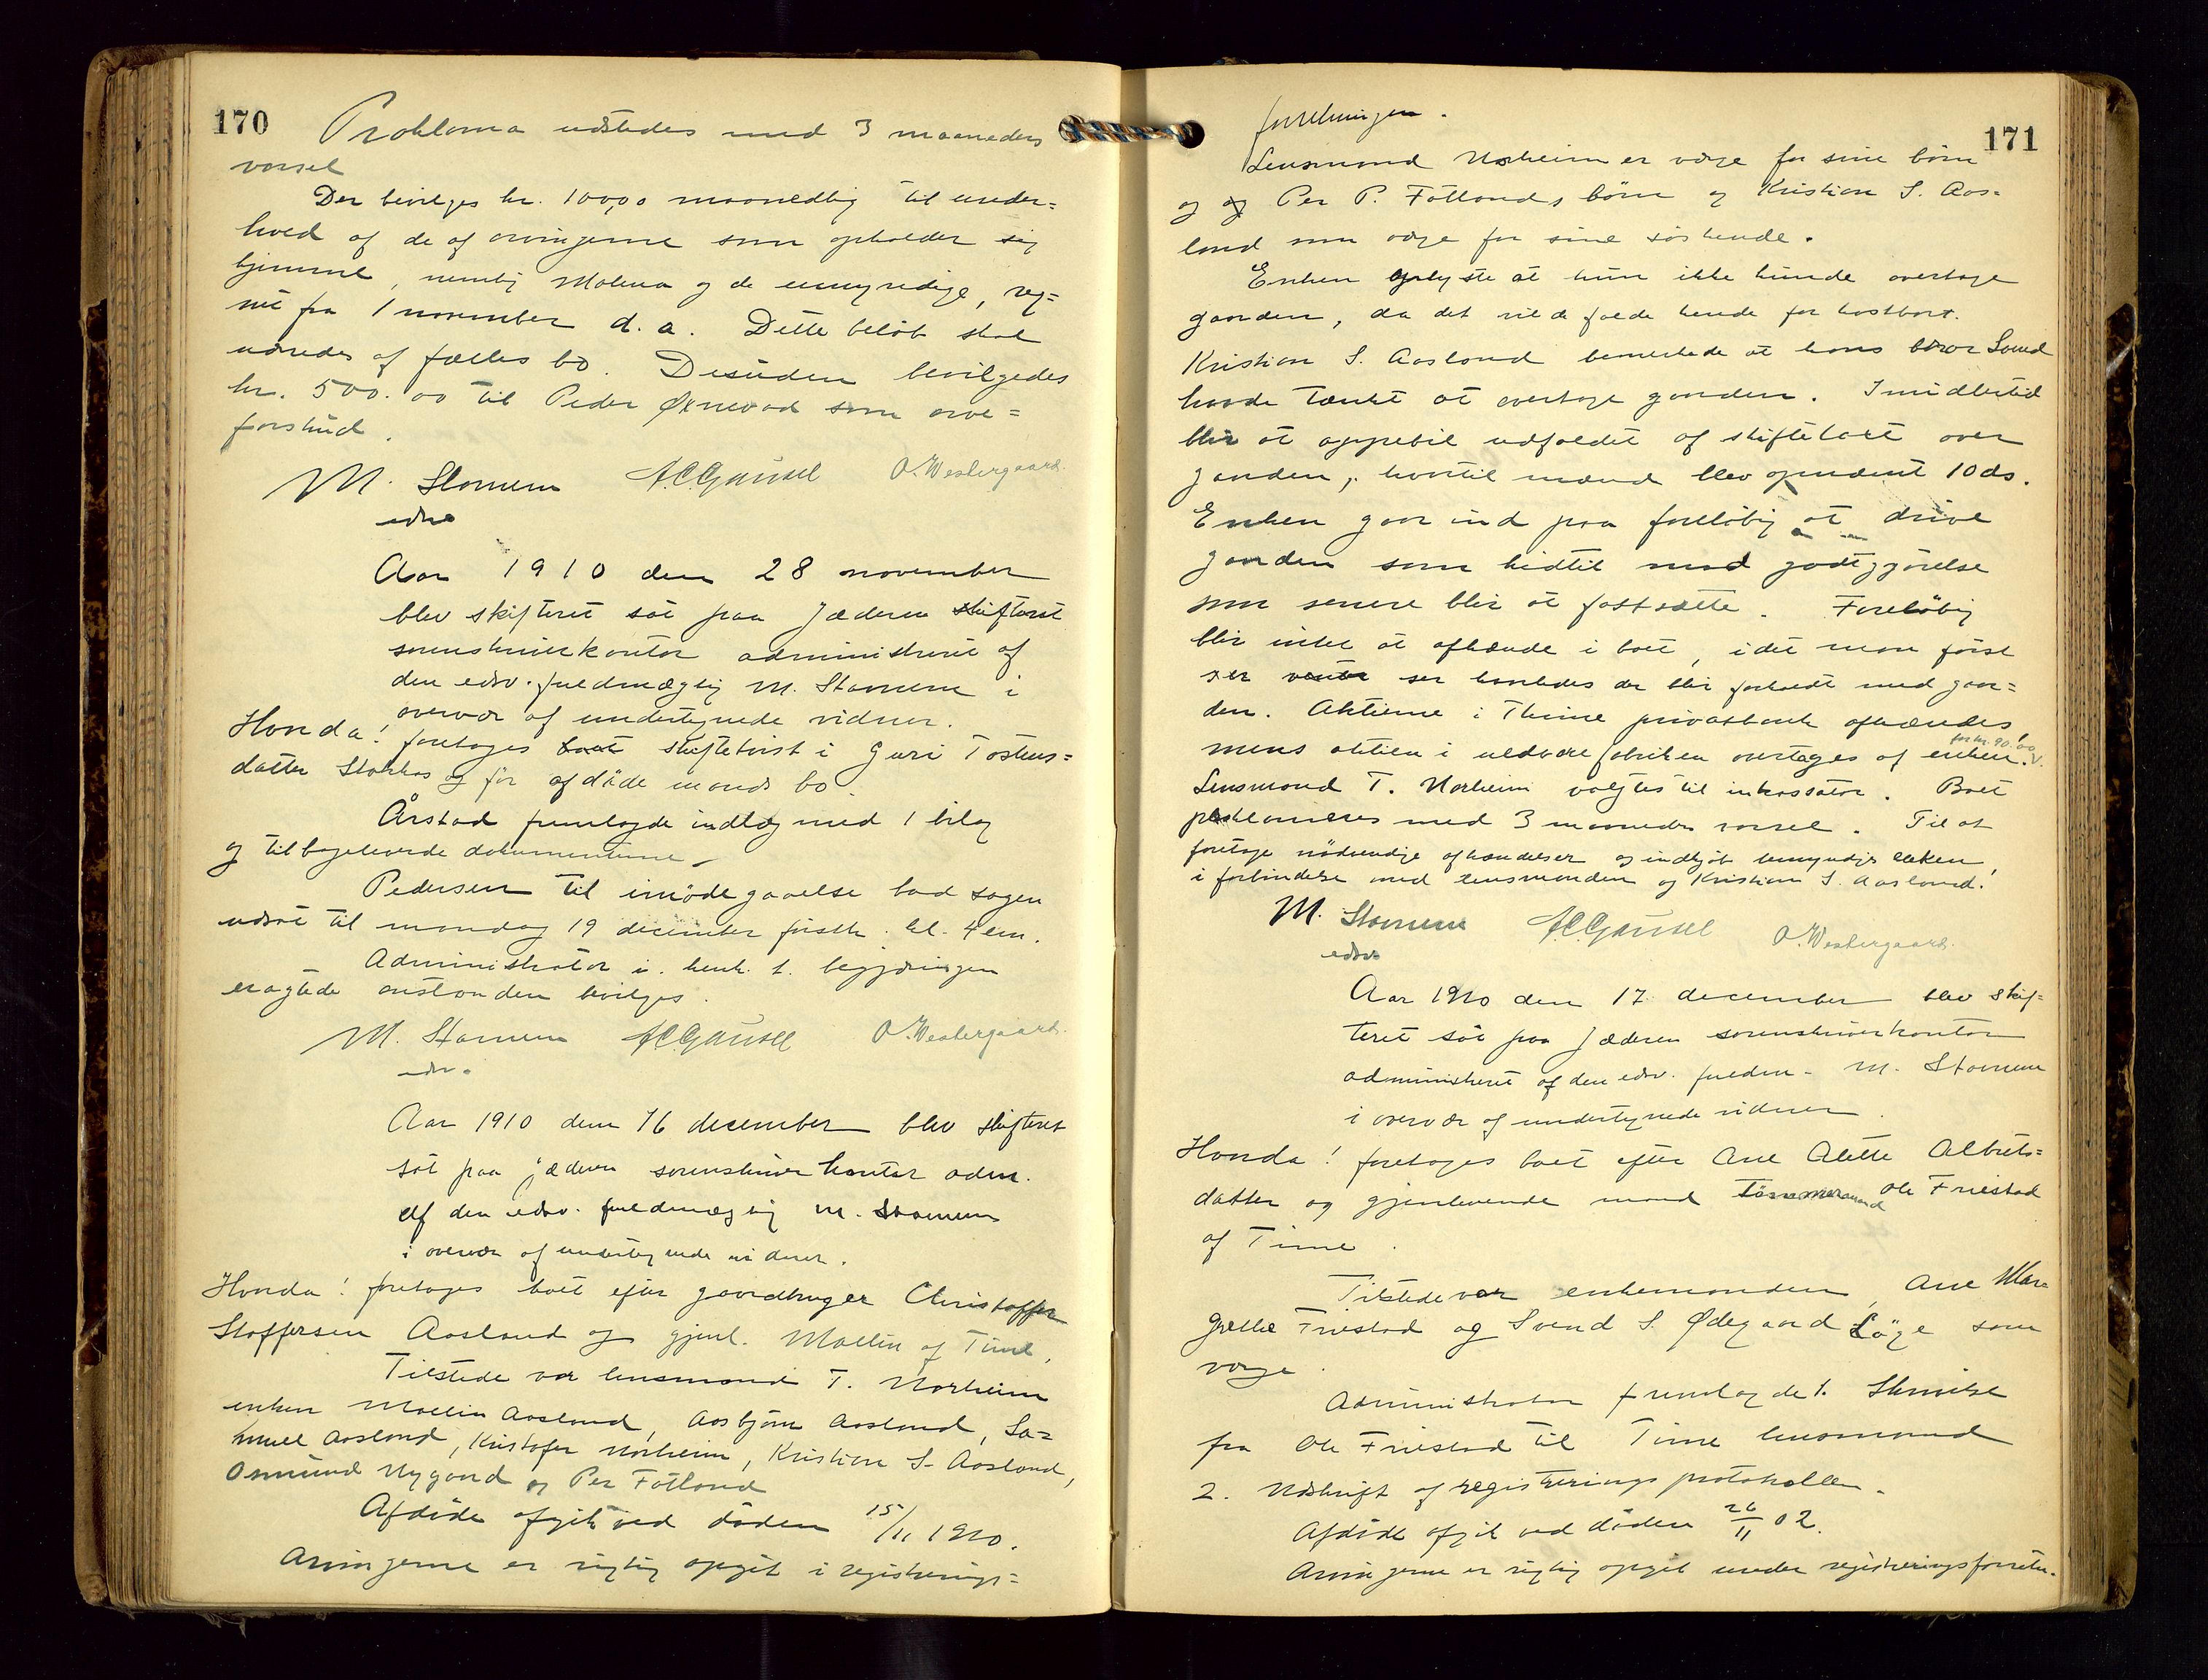 170
Proklama udstedes med 3 maaneders
varsel
Der bevilges kr. 100,00 maanedlig til under=
hold af de af arvingerne som opholder sig
hjemme, nemlig Malena og de umyndige, reg=
net fra 1 november d. a. Dette beløb skal
udredes af fælles bo. Desuden bevilgedes
kr. 500.00 til Peder Øxnevad som arve=
forskud.
M. Stamem A.C. Gausel O. Westergaard.
edsv
Aar 1910 den 28 november
blev skifteret sat paa Jæderen skifteret
sorenskriverkontor administreret af
den edsv. fuldmægtig M. Stamem i
overvær af undertegnede vidner.
Hvorda! foretages boet skiftetvist i Guri Tostens=
datter Storhos og før afdøde mands bo.
Årstad fremlagde indlæg med 1 bilag
og tilbageleverede dokumenterne.
Pedersen til imødegaaelse bad sagen
udsat til mandag 19 december førstk. kl. 4 em.
Administrator i. henh. t. begjæringen
eragtede anstanden bevilges.
M. Stamem A.C. Gausel O. Westergaard.
edsv.
Aar 1910 den 16 december blev skifteret
sat paa jæderen sorenskriverkontor adm.
af den edsv. fuldmægtig M. Stamem
i overvær af undertegnede vidner.
Hvorda! foretages boet efter gaardbruger Christoffer
Stoffersen Aasland og gjenl. Mallin af Time,
Tilstede var lensmand T. Norheim
enken Mallin Aasland, Aasbjørn Aasland, Sa=
muel Aasland, Kristofer Norheim, Kristian S. Aasland,
Osmund Nygaard og Per Fotland
Afdøde afgik ved døden 15/11 1910.
Arvingerne er rigtig opgit i registrerings=
171
forretningen.
Lensmand Norheim er værge for sine børn
og og Per P. Fotlands børn og Kristian S. Aas=
land som værge for sine søskende.
Enken oplyste at hun ikke kunde overtage
gaarden, da det vilde falde hende for kostbart.
Kristian S. Aasland bemerkede at hans bror Svend
havde tænkt at overtage gaarden. Imidlertid
blir at appebil udfældet af skiftetaxt over
gaarden, hvortil mænd blev opnævnt 10 ds.
Enken gaar ind paa foreløbig at drive
gaarden som hidtil mod godtgjørelse
som senere blir at fastsætte. Foreløbig
blir intet at afhænde i boet, idet man først
ser hvorledes der blir forholdt med gaar=
den. Aktierne i Thime privatbank afhændes,
mens aktien i uldvarefabriken overtages af enken for kr. 90.00.
Lensmand T. Norheim valgtes til inkassator. Boet
proklameres med 3 maaneders varsel. Til at
foretage nødvendige afhændelser og indkjøb bemyndiges enken
i forbindelse med lensmanden og Kristian S. Aasland.
M. Stamem A.C. Gausel O. Westergaard.
edsv
Aar 1910 den 17 december blev skif=
teret sat paa Jæderen sorenskriverkontor
administreret af den edsv. fuldm. M. Stamem
i overvær af undertegnede vidner.
Hvorda! foretages boet efter Ane Alette Albrets=
datter og gjenlevende mand tømmermand Ole Friestad
af Time.
Tilstede var enkemanden, Ane Mar=
grethe Friestad og Svend S. Ødegaard Løge som
værge.
Administrator fremlagde 1. Skrivelse
fra Ole Friestad til Time lensmand
2. Udskrift af registreringsprotokollen.
Afdøde afgik ved døden 26/11 02.
Arvingerne er rigtig opgit under registreringsforretn.